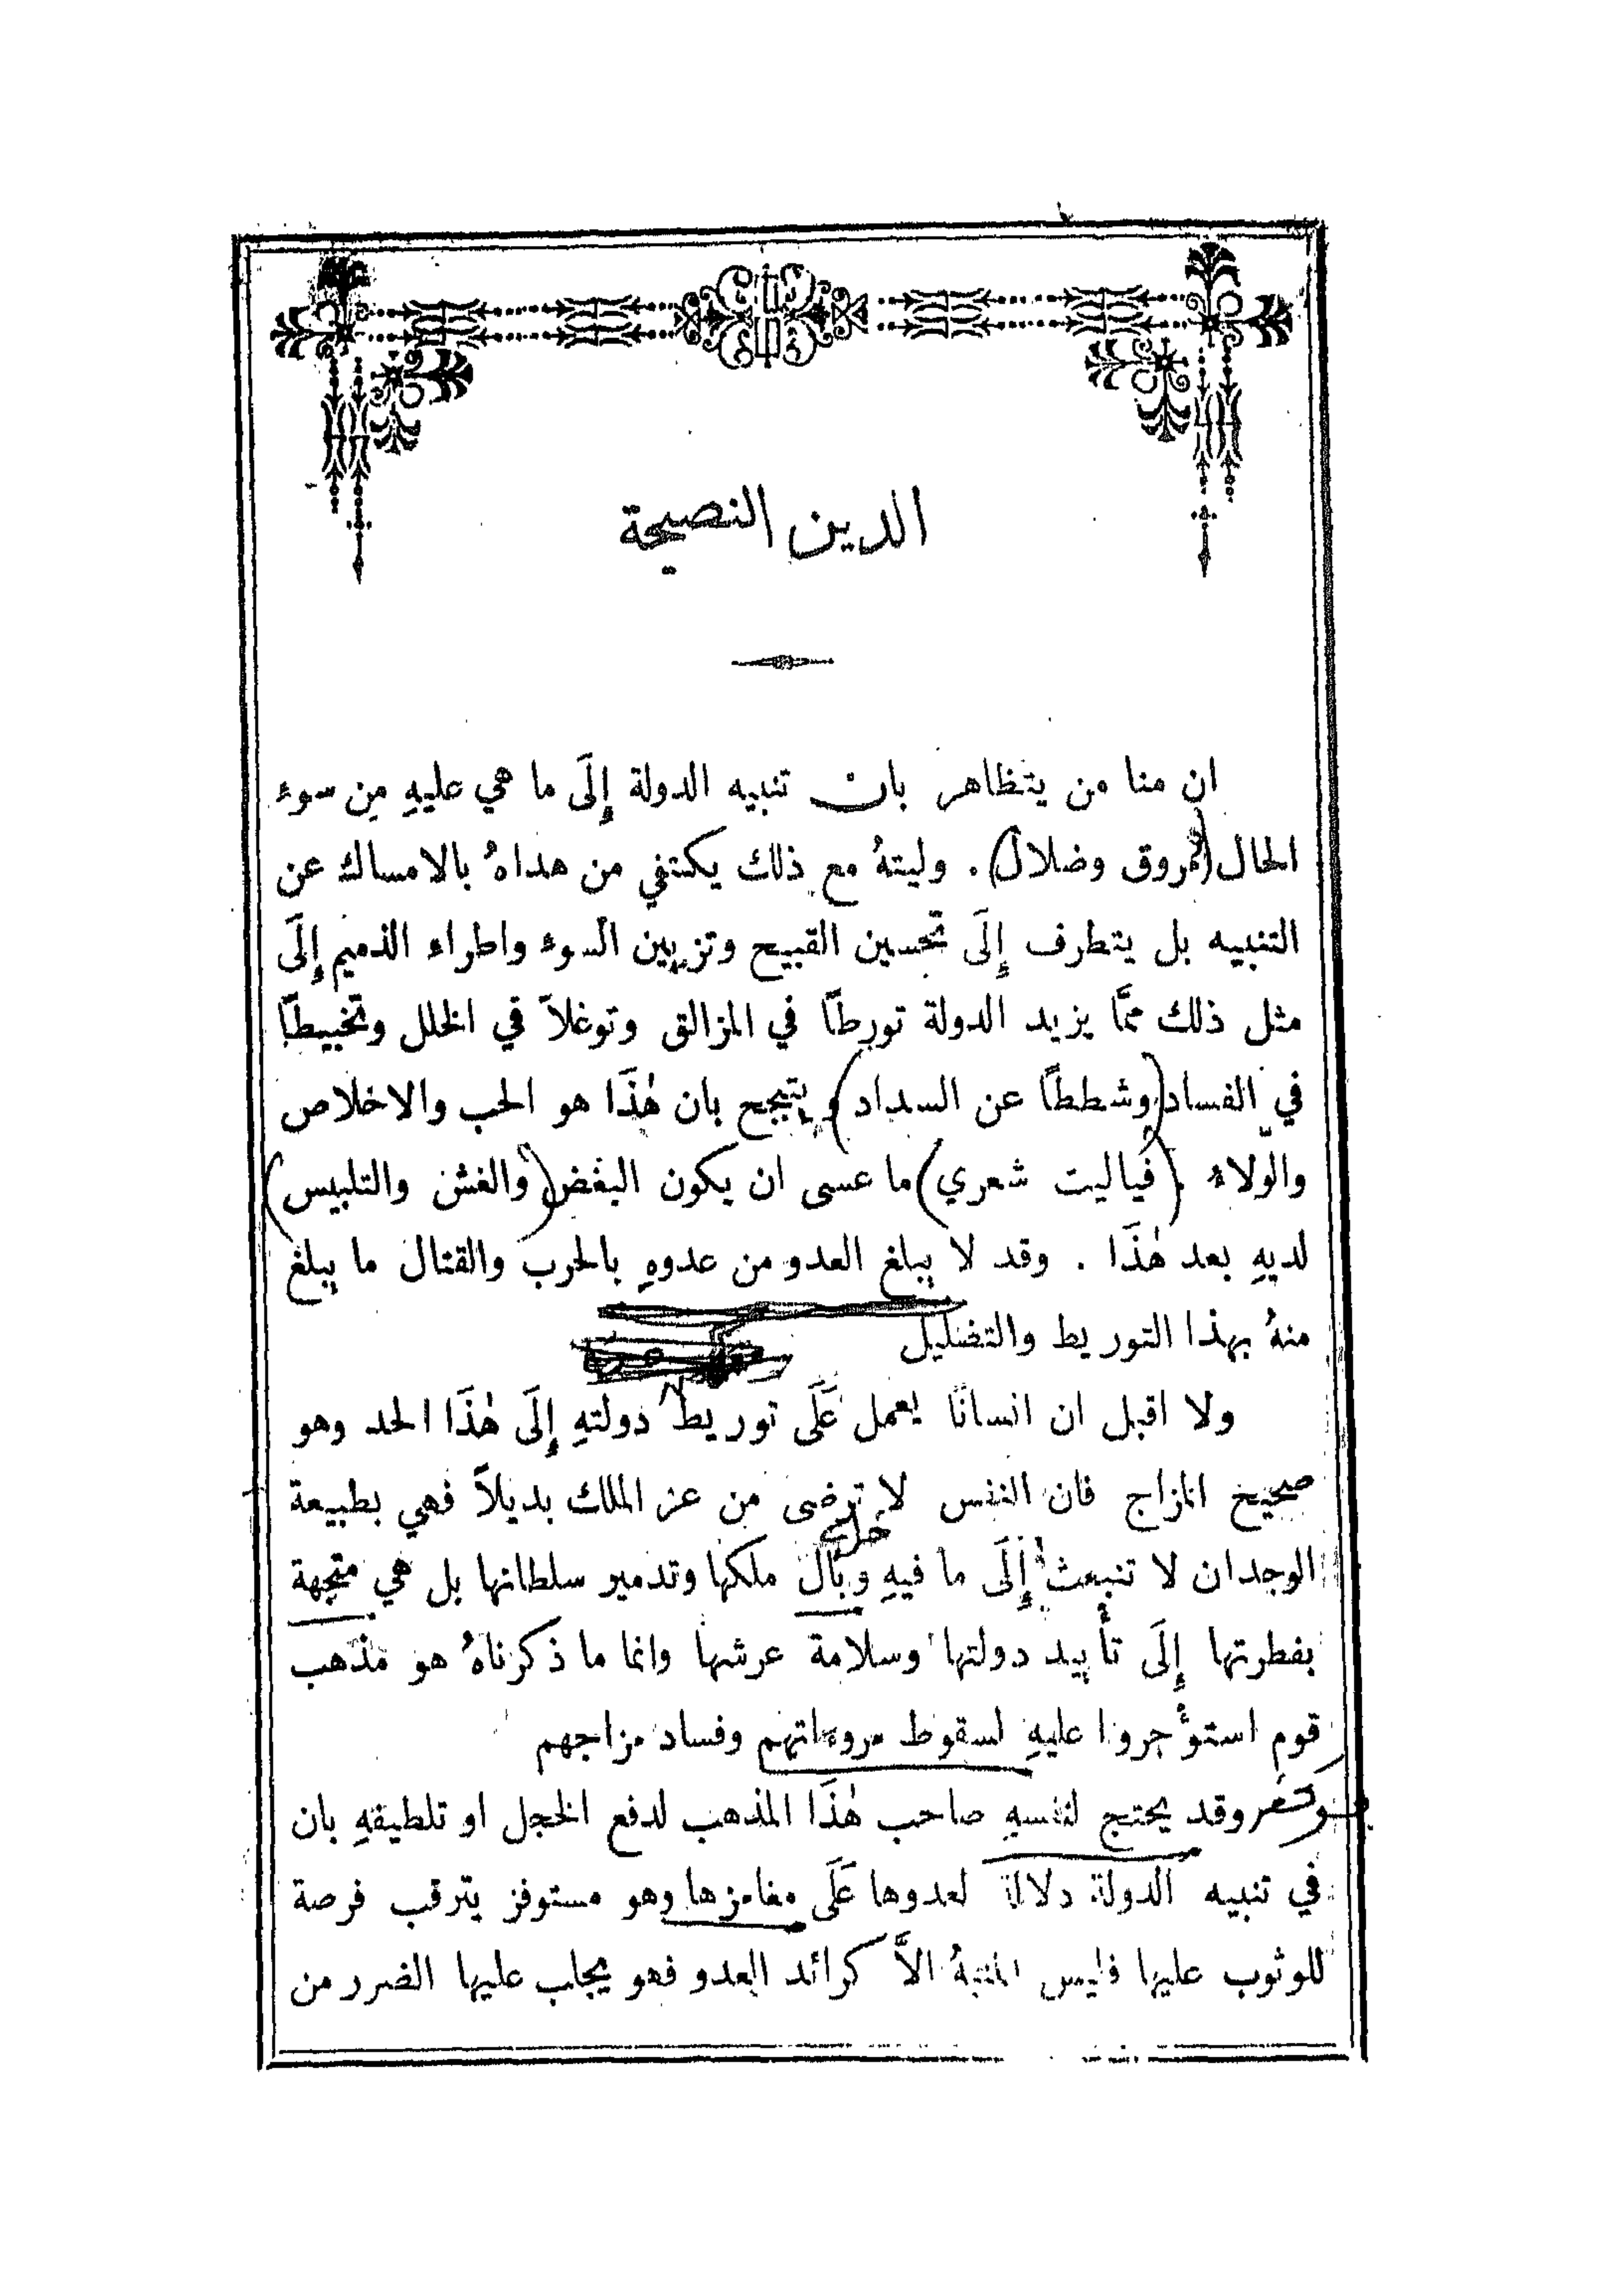 الدين النصيحة
ان منا من يتظاهر بان تنبيه الدولة إلَى ما هي عليهِ مِن سوء
الحال (مروق وضلال). وليتهُ مع ذلك يكتفي من هداهُ بالامساك عن
التنبيه بل يتطرف إلَى تحسين القبيح وتزيين السوء واطراء الذميم إلَى
مثل ذلك ممَّا يزيد الدولة تورطًا في المزالق وتوغلاً في الخلل وتخبيطًا
في الفساد (وشططًا عن السداد) ويتبجح بان هٰذَا هو الحب والاخلاص
والولاء. (فياليت شعري) ما عسى ان يكون البغض (والغش والتلبيس)
لديهِ بعد هٰذَا . وقد لا يبلغ العدو من عدوهِ بالحرب والقتال ما يبلغ
منهُ بهذا التوريط والتضليل
ولا اقبل ان انسانًا يعمل عَلَى توريط دولتهِ إلَى هٰذَا الحد وهو
صحيح المزاج فان النفس لا ترضى من عز الملك بديلاً فهي بطبيعة
الوجدان لا تنبعث إلَى ما فيهِ وبال ملكها وتدمير سلطانها بل هي متجهة
بفطرتها إلَى تأييد دولتها وسلامة عرشها وانما ما ذكرناهُ هو مذهب
قوم استؤجروا عليهِ لسقوط مروءاتهم وفساد مزاجهم
وقد يحتج لنفسهِ صاحب هٰذَا المذهب لدفع الخجل او تلطيفهِ بان
في تنبيه الدولة دلالة لعدوها عَلَى مغامزها وهو مستوفز يترقب فرصة
للوثوب عليها فليس المنبهُ الاَّ كرائد العدو فهو يجلب عليها الضرر من